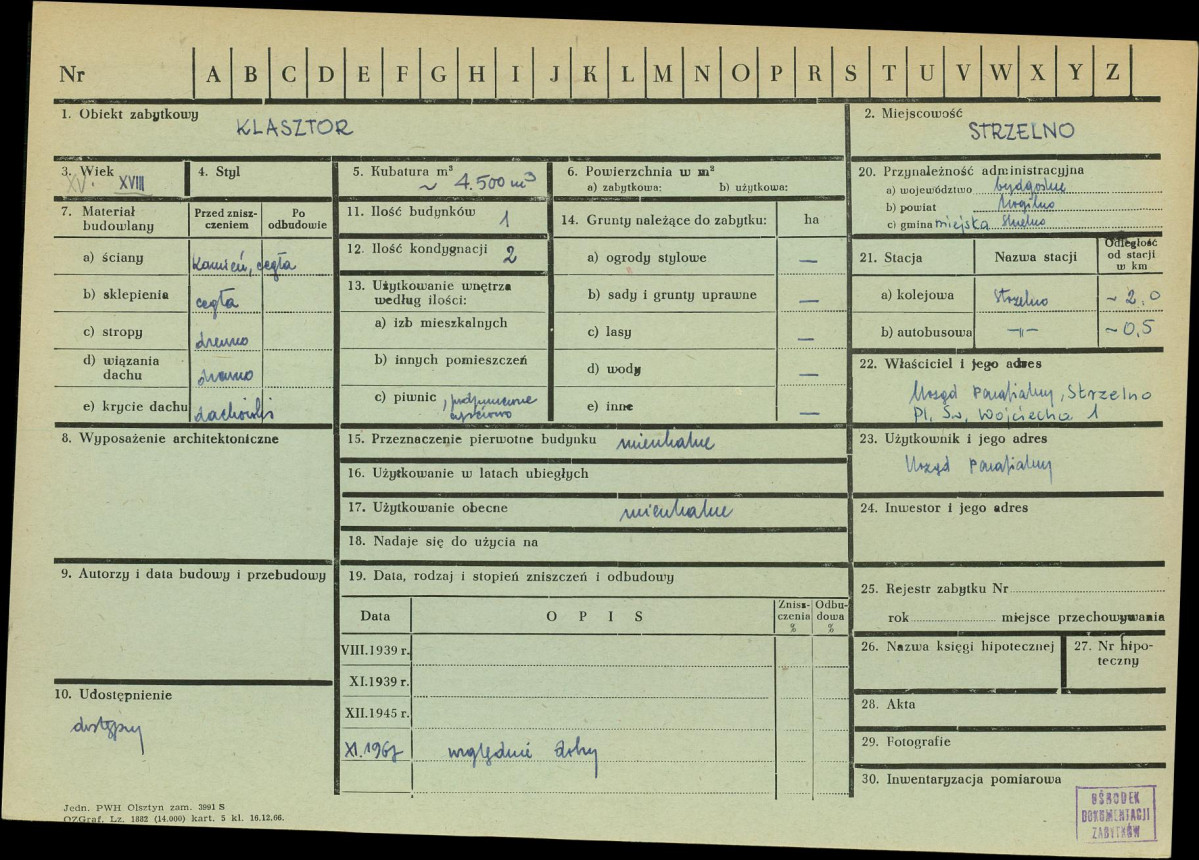 Nr A B C D E F G H I J K L M N O P R S T U V W X Y Z
1. Obiekt zabytkowy
KLASZTOR
2. Miejscowość
STRZELNO
3. Wiek
XV. XVIII
4. Styl
5. Kubatura m³
~ 4.500 m³
6. Powierzchnia w m²
a) zabytkowa: b) użytkowa:
20. Przynależność administracyjna
a) województwo bydgoskie
b) powiat Mogilno
c) gmina miejska Strzelno
7. Materiał budowlany
Przed zniszczeniem
Po odbudowie
a) ściany kamień, cegła
b) sklepienia cegła
c) stropy drewno
d) wiązania dachu drewno
e) krycie dachu dachówki
11. Ilość budynków 1
12. Ilość kondygnacji 2
13. Użytkowanie wnętrza
według ilości:
a) izb mieszkalnych
b) innych pomieszczeń
c) piwnic, podpiwniczone
częściowo
14. Grunty należące do zabytku: ha
a) ogrody stylowe —
b) sady i grunty uprawne —
c) lasy —
d) wody —
e) inne —
21. Stacja Nazwa stacji
Odległość
od stacji
w km
a) kolejowa Strzelno ~ 2,0
b) autobusowa —"— ~ 0,5
22. Właściciel i jego adres
Urząd Parafialny, Strzelno
Pl. Św. Wojciecha 1
8. Wyposażenie architektoniczne
15. Przeznaczenie pierwotne budynku mieszkalne
16. Użytkowanie w latach ubiegłych
17. Użytkowanie obecne mieszkalne
18. Nadaje się do użycia na
23. Użytkownik i jego adres
Urząd Parafialny
24. Inwestor i jego adres
9. Autorzy i data budowy i przebudowy
19. Data, rodzaj i stopień zniszczeń i odbudowy
Data OPIS
Zniszczenia %
Odbudowa %
VIII.1939 r.
XI.1939 r.
XII.1945 r.
XI.1967 względnie dobry
25. Rejestr zabytku Nr
rok miejsce przechowywania
26. Nazwa księgi hipotecznej
27. Nr hipoteczny
28. Akta
29. Fotografie
30. Inwentaryzacja pomiarowa
10. Udostępnienie
dostępny
Jedn. PWH Olsztyn zam. 3991 S
OZGraf. Lz. 1882 (14.000) kart. 5 kl. 16.12.66.
OŚRODEK
DOKUMENTACJI
ZABYTKÓW